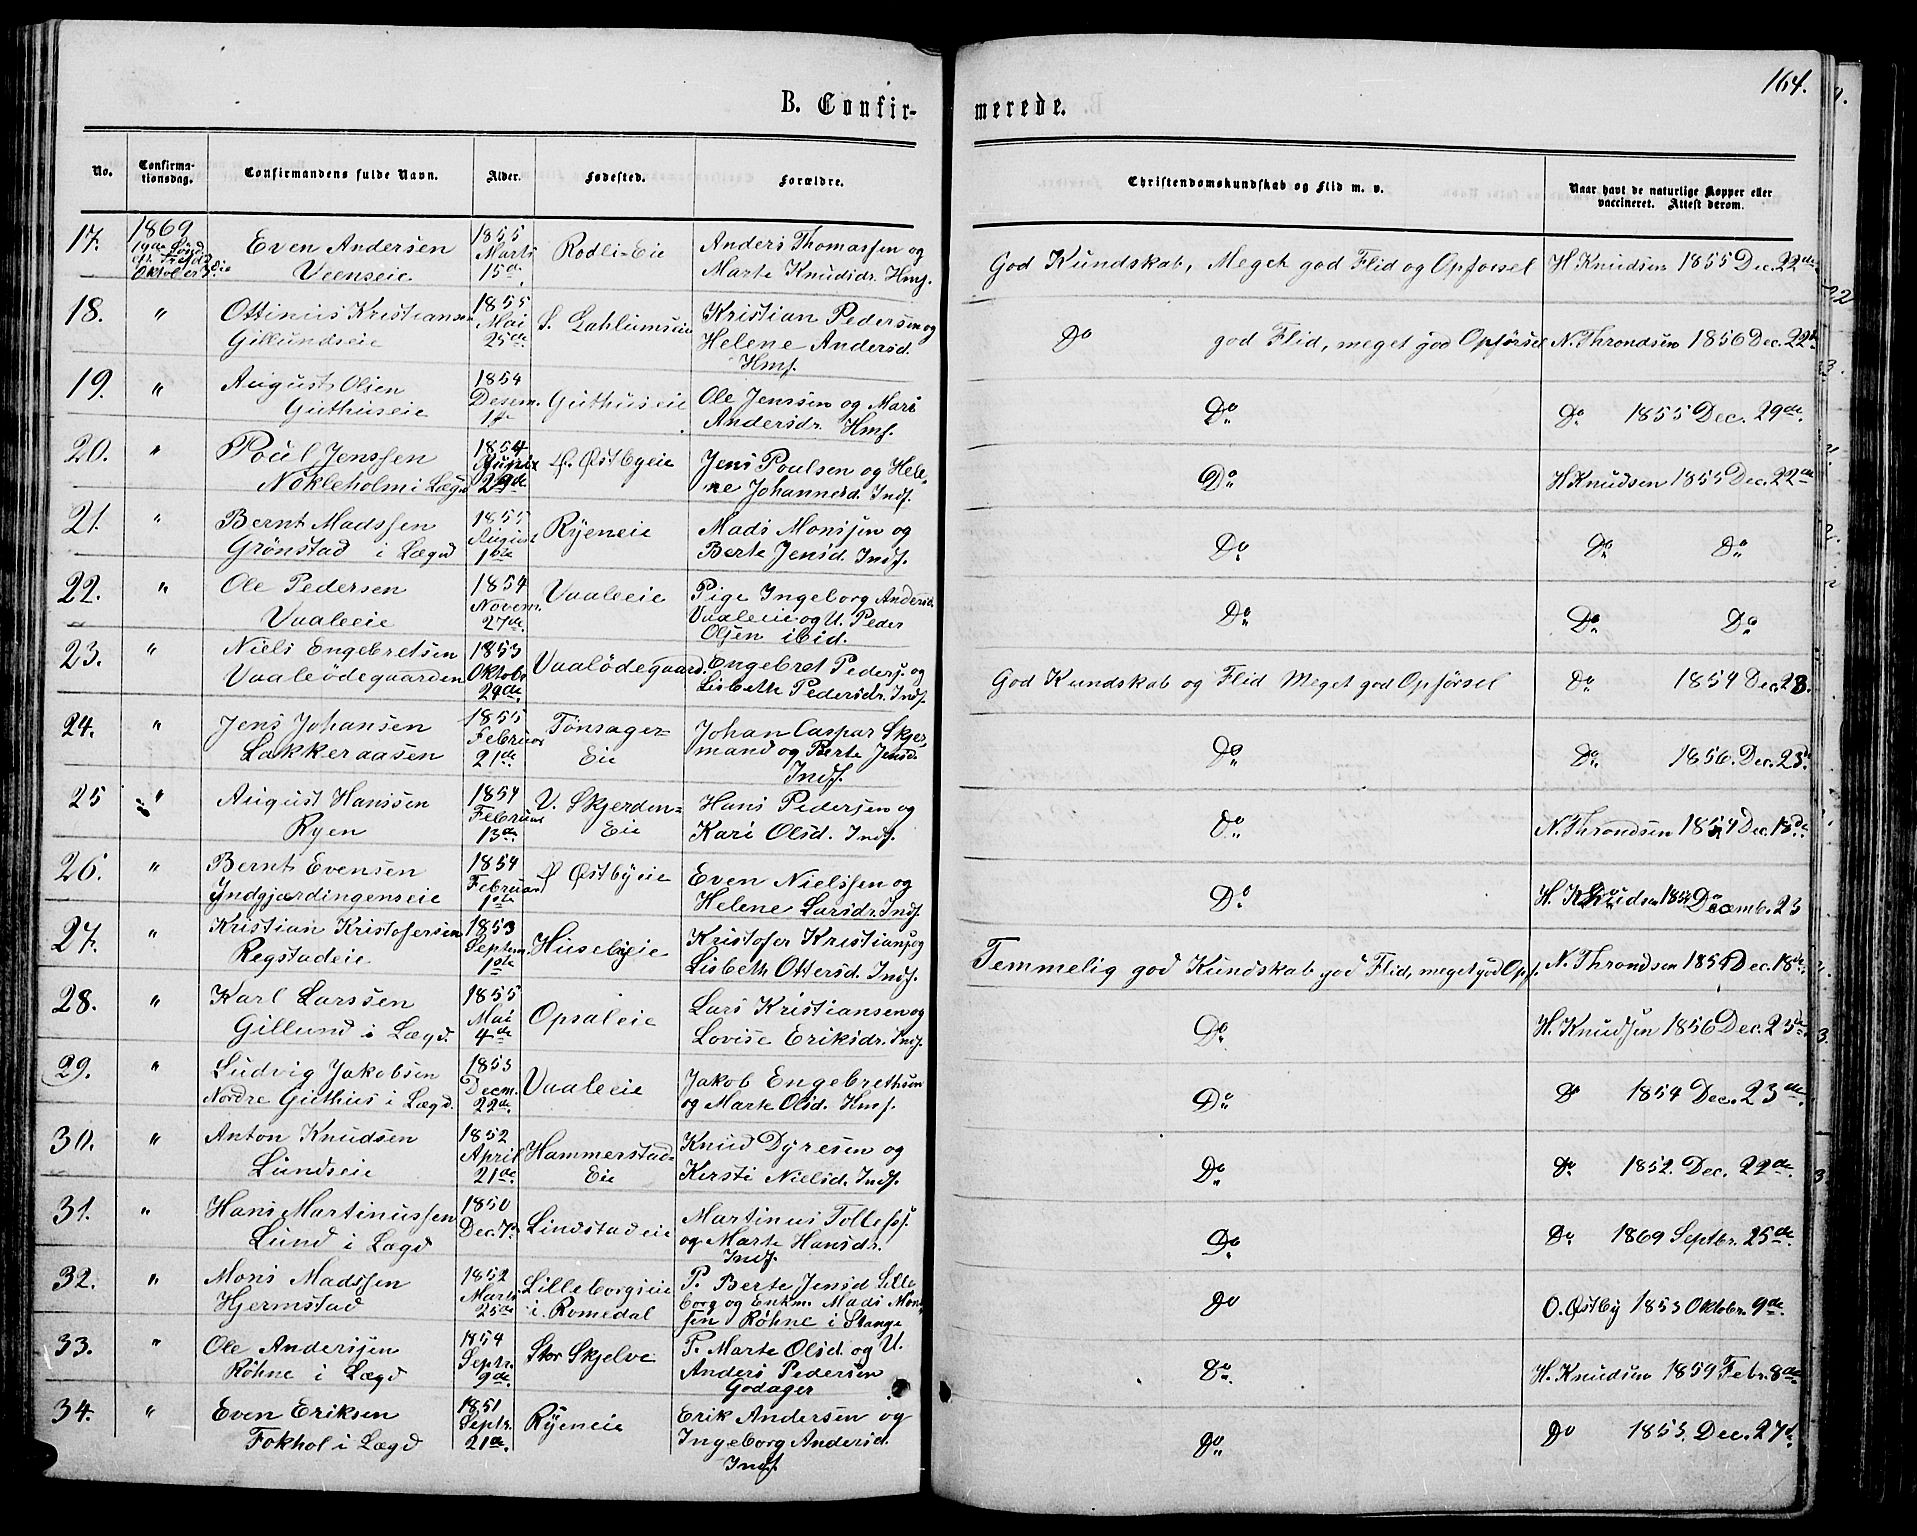 164.
B. Confirmerede.
No.
Confirmationsdag.
Confirmandens fulde Navn.
Alder.
Fødested.
Forældre.
Christendomskundskab og Flid m. v.
Naar havt de naturlige Kopper eller vaccineret. Attest derom.
17. 1869 19de Sønd. eft. Trefold. Oktober 3die
Even Andersen
Veenseie
1855 Marts 15de
Rodli-Eie
Anders Thomassen og
Marte Knudsdr. Hmf.
God Kundskab, Meget god Flid og Opførsel
H Knudsen 1855 Dec. 22de
18. "
Ottinius Kristiansen
Gillundseie
1855 Mai 25de
S. Gahlumseie
Kristian Pedersen og
Helene Andersd.
Hmf.
Do god Flid, meget god Opførsel
N. Throndsen 1856 Dec. 22de
19. "
August Olsen
Guthuseie
1854 Desem. 1ste
Guthuseie
Ole Jenssen og Mari
Andersdr. Hmf.
Do
Do 1855 Dec. 29de.
20. "
Poul Jenssen
Nökleholm i Lægd
1854 29de
S. Østbyeie
Jens Poulsen og Hele-
ne Johannesd. Indf.
Do
H Knudsen 1855 Dec. 22de
21. "
Bernt Madssen
Grönstad i Lægd
1855 August 1ste
Ryeneie
Mads Monssen og
Berte Jensd. Indf.
Do
Do Do
22. "
Ole Pedersen
Vaaleeie
1854 Novem. 27de
Vaaleeie
Pige Ingeborg Andersd.
Vaaleeie og U. Peder
Olsen ibid.
Do
Do Do
23. "
Niels Engebretsen
Vaaleödegaarden
1853 Oktobr 29de
Vaalödegaard.
Engebret Peders. og
Lisbeth Pedersdr. Indf.
God Kundskab og Flid Meget god Opførsel
Do 1854 Dec. 23.
24. "
Jens Johansen
Lakkeraasen
1855 Februar 21de
Tönsager-
Eie
Johan Caspar Skjer-
mand og Berte Jensd.
Indf.
Do
Do 1856. Dec. 23d.
25 "
August Hanssen
Ryen
1854 Februar 13de
V. Skjerden-
Eie
Hans Pedersen og
Kari Olsd. Indf.
Do
N. Throndsen 1854 Dec. 18de.
26. "
Bernt Evensen
Yndgjærdingenseie
1854 Februar 1ste
S Østbyeie
Even Nielssen og
Helene Larsdr. Indf.
Do
H. Knudsen 1854 Decemb. 23
27. "
Kristian Kristofersen
Regstadeie
1853 Septem. 1ste
Husebyeie
Kristofer Kristians. og
Lisbeth Ottersd. Indf.
Temmelig god Kundskab god Flid, meget god Opf.
N. Throndsen 1854 Dec. 18de.
28. "
Karl Larssen
Gillund i Lægd.
1855 Mai 4de
Opsaleie
Lars Kristiansen og
Lovise Eriksdr. Indf.
Do
H. Knudsen 1856 Dec. 23de
29. "
Ludvig Jakobsen
Nordre Guthus i Lægd.
1853 Decm. 22de.
Vaaleeie
Jakob Engebrethsen
og Marte Olsd. Hmf.
Do
Do 1854 Dec. 23de.
30. "
Anton Knudsen
Lundseie
1852 April 21de
Hammerstad-
Eie
Knud Dyresen og
Kersti Nielsd. Indf.
Do
Do 1852. Dec. 22de.
31. "
Hans Martinussen
Lund i Lægd
1850 Dec. 7de
Lindstadeie
Martinus Tollefs.
og Marte Hansdr.
Indf.
Do
Do 1869 Septbr. 25de.
32. "
Mons Madssen
Hjermstad
1852 Marts 25de
Lilleborgseie
i Romedal
P. Berte Jensd Lille
borg og Enkm. Mads Mon-
sen Røhne i Stange
Do
O. Østby 1853 Oktobr. 9de.
33. "
Ole Anderssen
Röhne i Lægd
1854 Septr. 9de.
Stor Skjelve
P. Marte Olsd. og U.
Anders Pedersen
Godager
Do
H. Knudsen 1859 Febr. 8de.
34. "
Even Eriksen
Fokhol i Lægd
1851 Septr. 21de.
Ryeneie
Erik Andersen og
Ingeborg Andersd.
Indf.
Do
Do 1853. Dec. 27d.